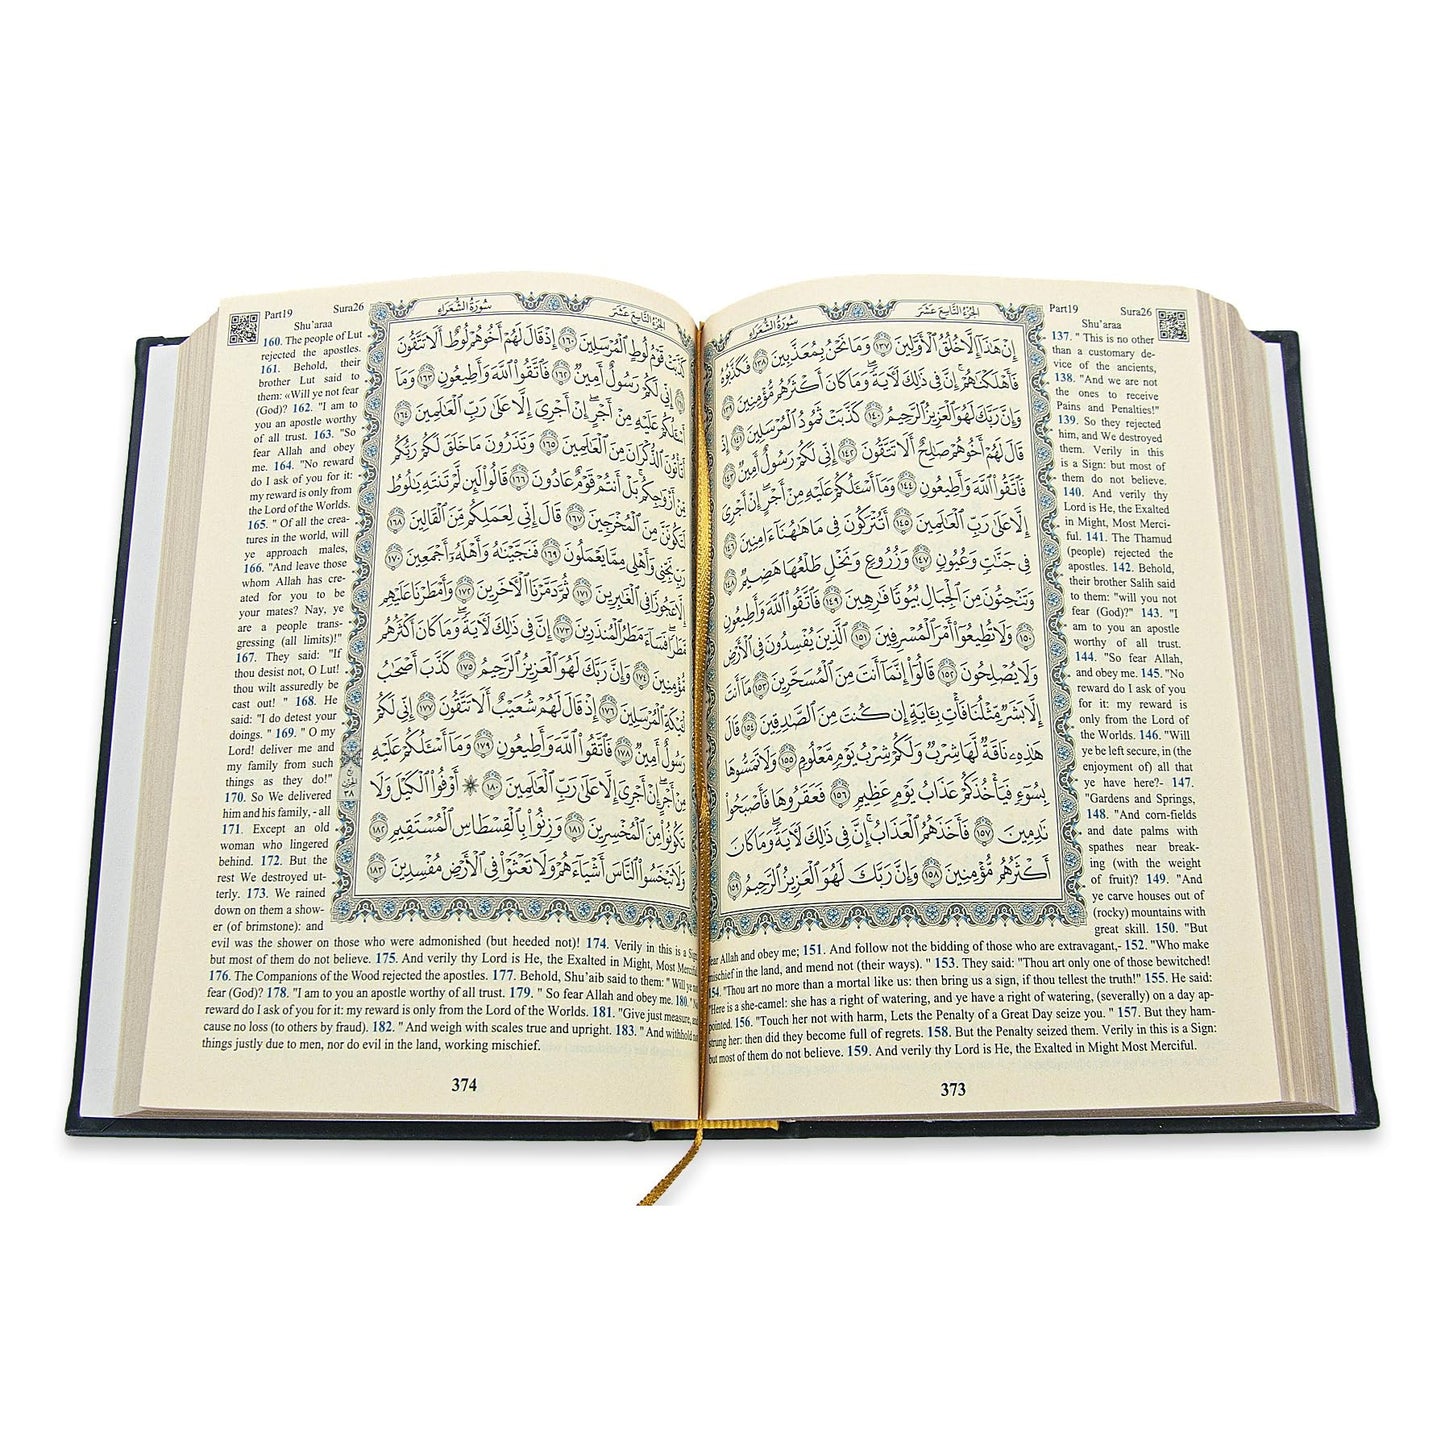 الجُزْءُ التَّاسِعَ عَشَرَ
سُورَةُ الشُّعَرَاءِ
إِنْ هَٰذَآ إِلَّا خُلُقُ ٱلْأَوَّلِينَ ١٣٧ وَمَا نَحْنُ بِمُعَذَّبِينَ ١٣٨ فَكَذَّبُوهُ
فَأَهْلَكْنَٰهُمْ إِنَّ فِى ذَٰلِكَ لَءَايَةً وَمَا كَانَ أَكْثَرُهُم مُّؤْمِنِينَ ١٣٩
وَإِنَّ رَبَّكَ لَهُوَ ٱلْعَزِيزُ ٱلرَّحِيمُ ١٤٠ كَذَّبَتْ ثَمُودُ ٱلْمُرْسَلِينَ ١٤١ إِذْ
قَالَ لَهُمْ أَخُوهُمْ صَٰلِحٌ أَلَا تَتَّقُونَ ١٤٢ إِنِّى لَكُمْ رَسُولٌ أَمِينٌ ١٤٣
فَٱتَّقُوا۟ ٱللَّهَ وَأَطِيعُونِ ١٤٤ وَمَآ أَسْـَٔلُكُمْ عَلَيْهِ مِنْ أَجْرٍ إِنْ أَجْرِىَ
إِلَّا عَلَىٰ رَبِّ ٱلْعَٰلَمِينَ ١٤٥ أَتُتْرَكُونَ فِى مَا هَٰهُنَآ ءَامِنِينَ ١٤٦
فِى جَنَّٰتٍ وَعُيُونٍ ١٤٧ وَزُرُوعٍ وَنَخْلٍ طَلْعُهَا هَضِيمٌ ١٤٨
وَتَنْحِتُونَ مِنَ ٱلْجِبَالِ بُيُوتًا فَٰرِهِينَ ١٤٩ فَٱتَّقُوا۟ ٱللَّهَ وَأَطِيعُونِ
١٥٠ وَلَا تُطِيعُوٓا۟ أَمْرَ ٱلْمُسْرِفِينَ ١٥١ ٱلَّذِينَ يُفْسِدُونَ فِى ٱلْأَرْضِ
وَلَا يُصْلِحُونَ ١٥٢ قَالُوٓا۟ إِنَّمَآ أَنتَ مِنَ ٱلْمُسَحَّرِينَ ١٥٣ مَآ أَنتَ
إِلَّا بَشَرٌ مِّثْلُنَا فَأْتِ بِـَٔايَةٍ إِن كُنتَ مِنَ ٱلصَّٰدِقِينَ ١٥٤ قَالَ
هَٰذِهِۦ نَاقَةٌ لَّهَا شِرْبٌ وَلَكُمْ شِرْبُ يَوْمٍ مَّعْلُومٍ ١٥٥ وَلَا تَمَسُّوهَا
بِسُوٓءٍ فَيَأْخُذَكُمْ عَذَابُ يَوْمٍ عَظِيمٍ ١٥٦ فَعَقَرُوهَا فَأَصْبَحُوا۟
نَٰدِمِينَ ١٥٧ فَأَخَذَهُمُ ٱلْعَذَابُ إِنَّ فِى ذَٰلِكَ لَءَايَةً وَمَا كَانَ
أَكْثَرُهُم مُّؤْمِنِينَ ١٥٨ وَإِنَّ رَبَّكَ لَهُوَ ٱلْعَزِيزُ ٱلرَّحِيمُ ١٥٩
Part19 Sura26
Shu'araa
137. " This is no other
than a customary de-
vice of the ancients,
138. "And we are not
the ones to receive
Pains and Penalties!"
139. So they rejected
him, and We destroyed
them. Verily in this
is a Sign: but most of
them do not believe.
140. And verily thy
Lord is He, the Exalted
in Might, Most Merci-
ful. 141. The Thamud
(people) rejected the
apostles. 142. Behold,
their brother Salih said
to them: "will you not
fear (God)?" 143. "I
am to you an apostle
worthy of all trust.
144. "So fear Allah,
and obey me. 145. "No
reward do I ask of you
for it: my reward is
only from the Lord of
the Worlds. 146. "Will
ye be left secure, in (the
enjoyment of) all that
ye have here?- 147.
"Gardens and Springs,
148. "And corn-fields
and date palms with
spathes near break-
ing (with the weight
of fruit)? 149. "And
ye carve houses out of
(rocky) mountains with
great skill. 150. "But
fear Allah and obey me; 151. And follow not the bidding of those who are extravagant,- 152. "Who make
mischief in the land, and mend not (their ways). " 153. They said: "Thou art only one of those bewitched!
154. "Thou art no more than a mortal like us: then bring us a sign, if thou tellest the truth!" 155. He said:
"Here is a she-camel: she has a right of watering, and ye have a right of watering, (severally) on a day ap-
pointed. 156. "Touch her not with harm, Lets the Penalty of a Great Day seize you. " 157. But they ham-
strung her: then did they become full of regrets. 158. But the Penalty seized them. Verily in this is a Sign:
but most of them do not believe. 159. And verily thy Lord is He, the Exalted in Might Most Merciful.
373
الجُزْءُ التَّاسِعَ عَشَرَ
سُورَةُ الشُّعَرَاءِ
كَذَّبَتْ قَوْمُ لُوطٍ ٱلْمُرْسَلِينَ ١٦٠ إِذْ قَالَ لَهُمْ أَخُوهُمْ لُوطٌ أَلَا تَتَّقُونَ
إِنِّى لَكُمْ رَسُولٌ أَمِينٌ ١٦٢ فَٱتَّقُوا۟ ٱللَّهَ وَأَطِيعُونِ ١٦٣ وَمَآ
أَسْـَٔلُكُمْ عَلَيْهِ مِنْ أَجْرٍ إِنْ أَجْرِىَ إِلَّا عَلَىٰ رَبِّ ٱلْعَٰلَمِينَ ١٦٤
أَتَأْتُونَ ٱلذُّكْرَانَ مِنَ ٱلْعَٰلَمِينَ ١٦٥ وَتَذَرُونَ مَا خَلَقَ لَكُمْ رَبُّكُم
مِّنْ أَزْوَٰجِكُم بَلْ أَنتُمْ قَوْمٌ عَادُونَ ١٦٦ قَالُوا۟ لَئِن لَّمْ تَنتَهِ يَٰلُوطُ
لَتَكُونَنَّ مِنَ ٱلْمُخْرَجِينَ ١٦٧ قَالَ إِنِّى لِعَمَلِكُم مِّنَ ٱلْقَالِينَ ١٦٨
رَبِّ نَجِّنِى وَأَهْلِى مِمَّا يَعْمَلُونَ ١٦٩ فَنَجَّيْنَٰهُ وَأَهْلَهُۥٓ أَجْمَعِينَ ١٧٠
إِلَّا عَجُوزًا فِى ٱلْغَٰبِرِينَ ١٧١ ثُمَّ دَمَّرْنَا ٱلْءَاخَرِينَ ١٧٢ وَأَمْطَرْنَا عَلَيْهِم
مَّطَرًا فَسَآءَ مَطَرُ ٱلْمُنذَرِينَ ١٧٣ إِنَّ فِى ذَٰلِكَ لَءَايَةً وَمَا كَانَ أَكْثَرُهُم
مُّؤْمِنِينَ ١٧٤ وَإِنَّ رَبَّكَ لَهُوَ ٱلْعَزِيزُ ٱلرَّحِيمُ ١٧٥ كَذَّبَ أَصْحَٰبُ
لْـَٔيْكَةِ ٱلْمُرْسَلِينَ ١٧٦ إِذْ قَالَ لَهُمْ شُعَيْبٌ أَلَا تَتَّقُونَ ١٧٧ إِنِّى لَكُمْ
رَسُولٌ أَمِينٌ ١٧٨ فَٱتَّقُوا۟ ٱللَّهَ وَأَطِيعُونِ ١٧٩ وَمَآ أَسْـَٔلُكُمْ عَلَيْهِ
مِنْ أَجْرٍ إِنْ أَجْرِىَ إِلَّا عَلَىٰ رَبِّ ٱلْعَٰلَمِينَ ١٨٠ ۞ أَوْفُوا۟ ٱلْكَيْلَ وَلَا
تَكُونُوا۟ مِنَ ٱلْمُخْسِرِينَ ١٨١ وَزِنُوا۟ بِٱلْقِسْطَاسِ ٱلْمُسْتَقِيمِ ١٨٢
وَلَا تَبْخَسُوا۟ ٱلنَّاسَ أَشْيَآءَهُمْ وَلَا تَعْثَوْا۟ فِى ٱلْأَرْضِ مُفْسِدِينَ ١٨٣
٣٨
Part19 Sura26
Shu'araa
160. The people of Lut
rejected the apostles.
161. Behold, their
brother Lut said to
them: «Will ye not fear
(God)? 162. "I am to
you an apostle worthy
of all trust. 163. "So
fear Allah and obey
me. 164. "No reward
do I ask of you for it:
my reward is only from
the Lord of the Worlds.
165. " Of all the crea-
tures in the world, will
ye approach males,
166. "And leave those
whom Allah has cre-
ated for you to be
your mates? Nay, ye
are a people trans-
gressing (all limits)!"
167. They said: "If
thou desist not, O Lut!
thou wilt assuredly be
cast out! " 168. He
said: "I do detest your
doings. " 169. " O my
Lord! deliver me and
my family from such
things as they do!"
170. So We delivered
him and his family, - all
171. Except an old
woman who lingered
behind. 172. But the
rest We destroyed ut-
terly. 173. We rained
down on them a show-
er (of brimstone): and
evil was the shower on those who were admonished (but heeded not)! 174. Verily in this is a Sign
but most of them do not believe. 175. And verily thy Lord is He, the Exalted in Might, Most Merciful
176. The Companions of the Wood rejected the apostles. 177. Behold, Shu'aib said to them: " Will ye not
fear (God)? 178. "I am to you an apostle worthy of all trust. 179. " So fear Allah and obey me. 180. "No
reward do I ask of you for it: my reward is only from the Lord of the Worlds. 181. "Give just measure, and
cause no loss (to others by fraud). 182. " And weigh with scales true and upright. 183. " And withhold not
things justly due to men, nor do evil in the land, working mischief.
374